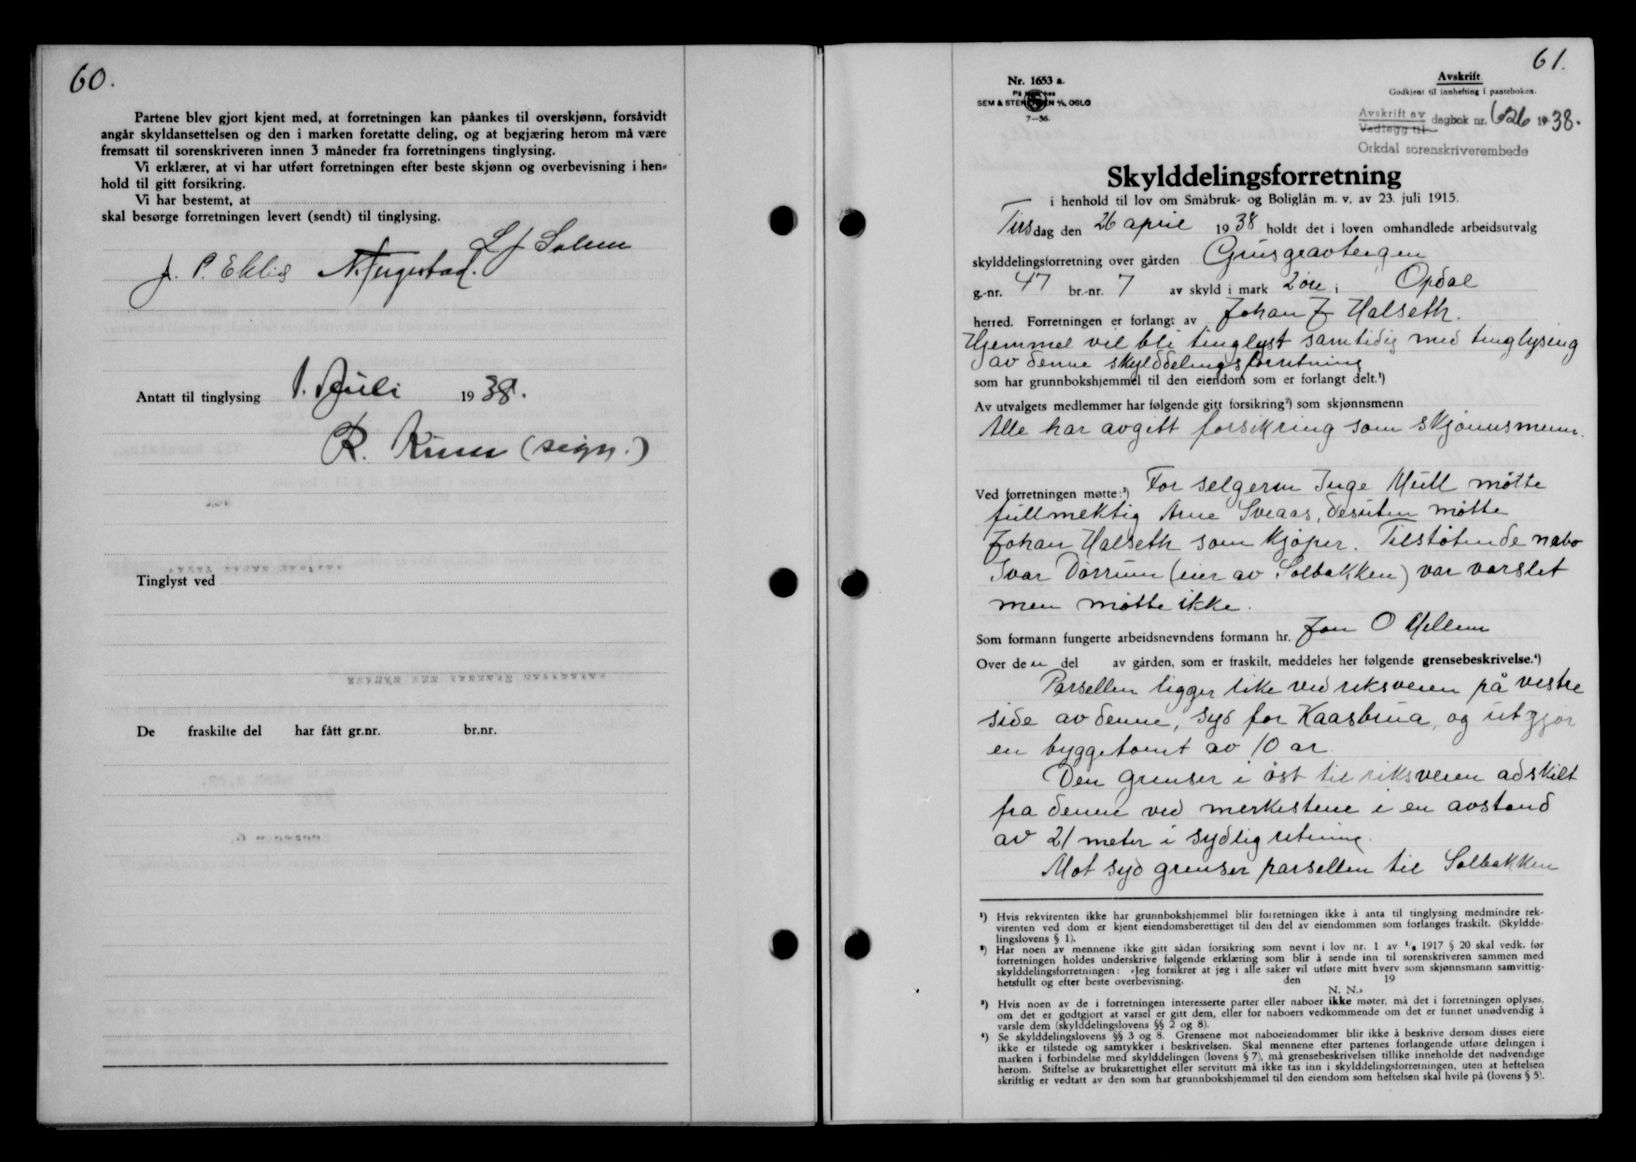 60.
Partene blev gjort kjent med, at forretningen kan påankes til overskjønn, forsåvidt
angår skyldansettelsen og den i marken foretatte deling, og at begjæring herom må være
fremsatt til sorenskriveren innen 3 måneder fra forretningens tinglysing.
Vi erklærer, at vi har utført forretningen efter beste skjønn og overbevisning i hen=
hold til gitt forsikring.
Vi har bestemt, at
skal besørge forretningen levert (sendt) til tinglysing.
J. P. Eklis
Antatt til tinglysing 1. Juli 1938.
R. (sign.)
Tinglyst ved
De fraskilte del har fått gr.nr. br.nr.
61.
Nr. 1653 a.
SEM & STENERSEN A/S, OSLO
7—36.
Avskrift
Godkjent til innhefting i panteboken.
Avskrift av
Vedlegg til
dagbok nr. 626 1938.
Orkdal sorenskriverembede
Skylddelingsforretning
i henhold til lov om Småbruk- og Boliglån m. v. av 23. juli 1915.
Tirsdag den 26 april 1938 holdt det i loven omhandlede arbeidsutvalg
skylddelingsforretning over gården Grusgravteigen
g.-nr. 47 br.-nr. 7 av skyld i mark 2 øre i Opdal
herred. Forretningen er forlangt av Johan J Halseth.
Hjemmel vil bli tinglyst samtidig med tinglysing
av denne skylddelingsforretning
som har grunnbokshjemmel til den eiendom som er forlangt delt.¹)
Av utvalgets medlemmer har følgende gitt forsikring²) som skjønnsmenn
Alle har avgitt forsikring som skjønnsmenn.
Ved forretningen møtte:³) For selgeren Inge Müll møtte
fullmektig Arne Sveaas, desuten møtte
Johan Halseth som kjøper. Tilstøtende nabo
Ivar Dørrum (eier av Solbakken) var varslet
men møtte ikke.
Som formann fungerte arbeidsnevndens formann hr. Jon O Mellem
Over den del av gården, som er fraskilt, meddeles her følgende grensebeskrivelse.⁴)
Parsellen ligger like ved riksveien på vestre
side av denne, syd for Kaasbrua, og utgjør
en byggetomt av 10 ar.
Den grenser i øst til riksveien adskilt
fra denne ved merkestene i en avstand
av 21 meter i sydlig retning.
Mot syd grenser parsellen til Solbakken
¹) Hvis rekvirenten ikke har grunnbokshjemmel blir forretningen ikke å anta til tinglysing medmindre rek-
virenten ved dom er kjent eiendomsberettiget til den del av eiendommen som forlanges fraskilt. (Skyldde-
lingslovens § 1).
²) Har noen av mennene ikke gitt sådan forsikring som nevnt i lov nr. 1 av 1/6 1917 § 20 skal vedk. før
forretningen holdes underskrive følgende erklæring som blir å sende inn til sorenskriveren sammen med
skylddelingsforretningen: «Jeg forsikrer at jeg i alle saker vil utføre mitt hverv som skjønnsmann samvittig-
hetsfullt og efter beste overbevisning. den 19
N. N.»
³) Hvis noen av de i forretningen interesserte parter eller naboer ikke møter, må det i forretningen oplyses,
om det er godtgjort at varsel er gitt dem, eller for naboers vedkommende om det er funnet unødvendig å
varsle dem (skylddelingslovens §§ 2 og 8).
⁴) Se skylddelingslovens §§ 3 og 8. Grensene mot naboeiendommer blir ikke å beskrive dersom disses eiere
ikke er tilstede og samtykker i beskrivelsen. Skal mennene efter partenes forlangende utføre delingen i
marken i forbindelse med skylddelingen (lovens § 7), må grensebeskrivelsen tillike inneholde det nødvendige
herom. Stiftelse av bruksrettighet eller servitutt må ikke tas inn i skylddelingsforretningen, uten at heftelsen
skriftlig er vedtatt av den som har grunnbokshjemmel til den eiendom som heftelsen skal hvile på (lovens § 5).